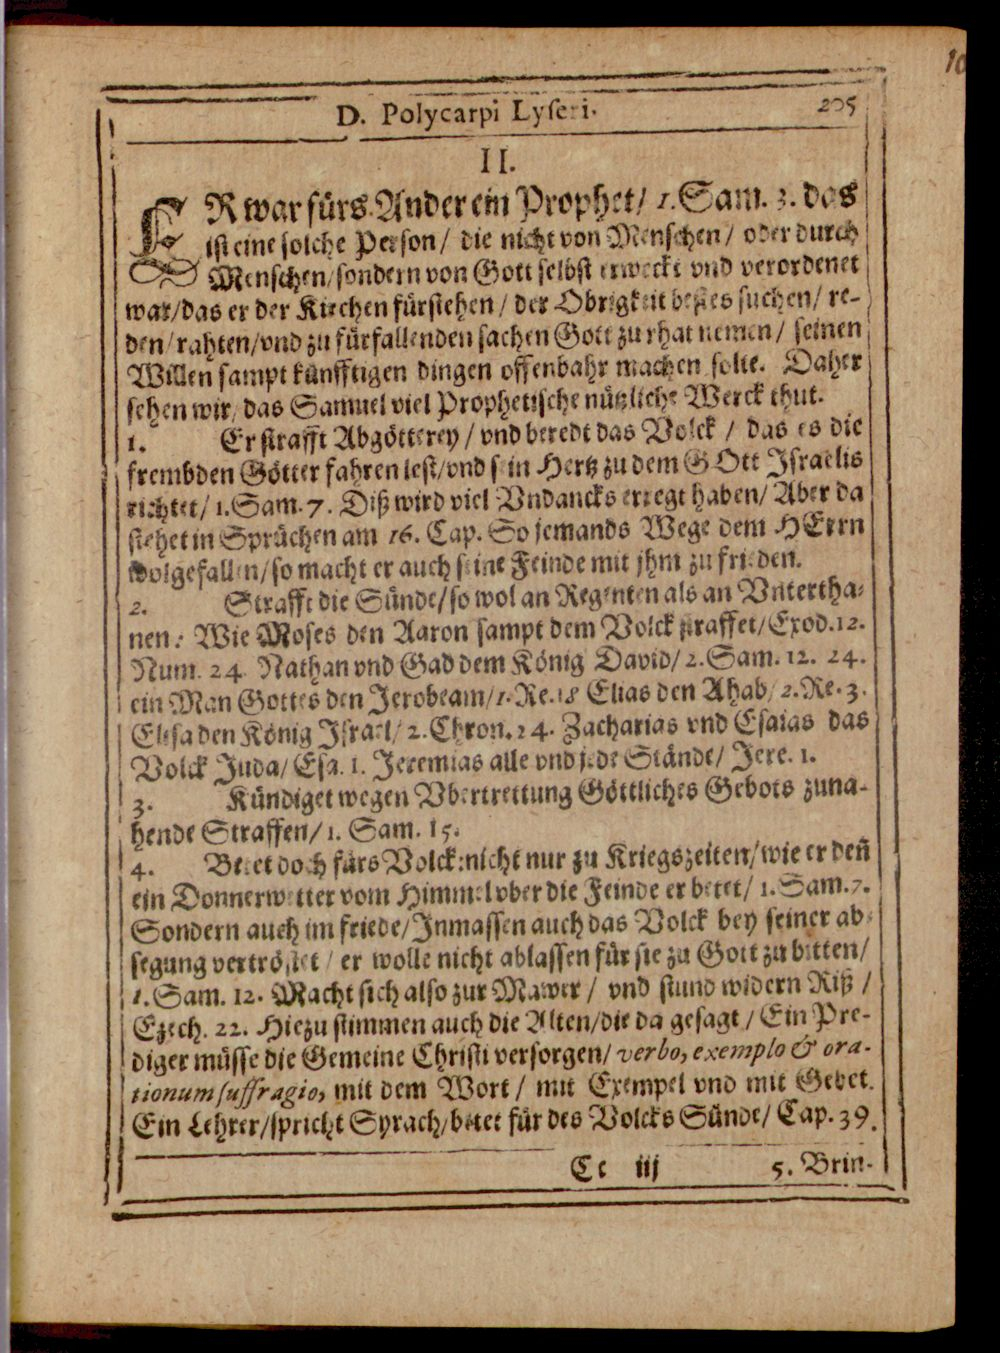 10
D. Polycarpi Lyseri. 205
II.
ER war fürs Ander ein Prophet/ 1. Sam. 3. das
ist eine solche Person/ die nicht von Menschen/ oder durch
Menschen/ sondern von Gott selbst erweckt vnd verordenet
war/das er der Kirchen fürstehen/ der Obrigkeit bestes suchen/ re-
den/ rahten/vnd zu fürfallenden sachen Gott zu rhat nemen/ seinen
Willen sampt künfftigen dingen offenbahr machen solte. Daher
sehen wir/ das Samuel viel Prophetische nützliche Werck thut.
1. Er strafft Abgötterey/ vnd beredt das Volck/ das es die
frembden Götter fahren lest/vnd sein Hertz zu dem GOtt Israelis
richtet/ 1. Sam. 7. Diß wird viel Vndancks erregt haben/ Aber da
stehet in Sprüchen am 16. Cap. So jemands Wege dem HErrn
wolgefallen/so macht er auch seine Feinde mit jhm zu frieden.
2. Strafft die Sünde/so wol an Regenten als an Vntertha-
nen: Wie Moses den Aaron sampt dem Volck straffet/Exod.12.
Num. 24. Nathan vnd Gad dem König David/ 2. Sam. 12. 24.
ein Man Gottes den Jerobeam/1. Re. 18 Elias den Ahab/ 2. Re. 3.
Elisa den König Israel/ 2. Chron. 24. Zacharias vnd Esaias das
Volck Juda/ Esa. 1. Jeremias alle vnd jede Stände/ Jere. 1.
3. Kündiget wegen Vbertrettung Göttliches Gebots zuna-
hende Straffen/ 1. Sam. 15.
4. Betet doch fürs Volck:nicht nur zu Kriegszeiten/wie er deñ
ein Donnerwetter vom Himmel vber die Feinde erbetet/ 1. Sam. 7.
Sondern auch im friede/Inmassen auch das Volck bey seiner ab-
segung vertröstet/ er wolle nicht ablassen für sie zu Gott zu bitten/
1. Sam. 12. Macht sich also zur Mawer/ vnd stund widern Riß/
Ezech. 22. Hiezu stimmen auch die Alten/die da gesagt/ Ein Pre-
diger müsse die Gemeine Christi versorgen/ verbo, exemplo & ora-
tionum suffragio, mit dem Wort/ mit Exempel vnd mit Gebet.
Ein Lehrer/spricht Syrach/betet für des Volcks Sünde/ Cap. 39.
Cc iij 5. Brin-